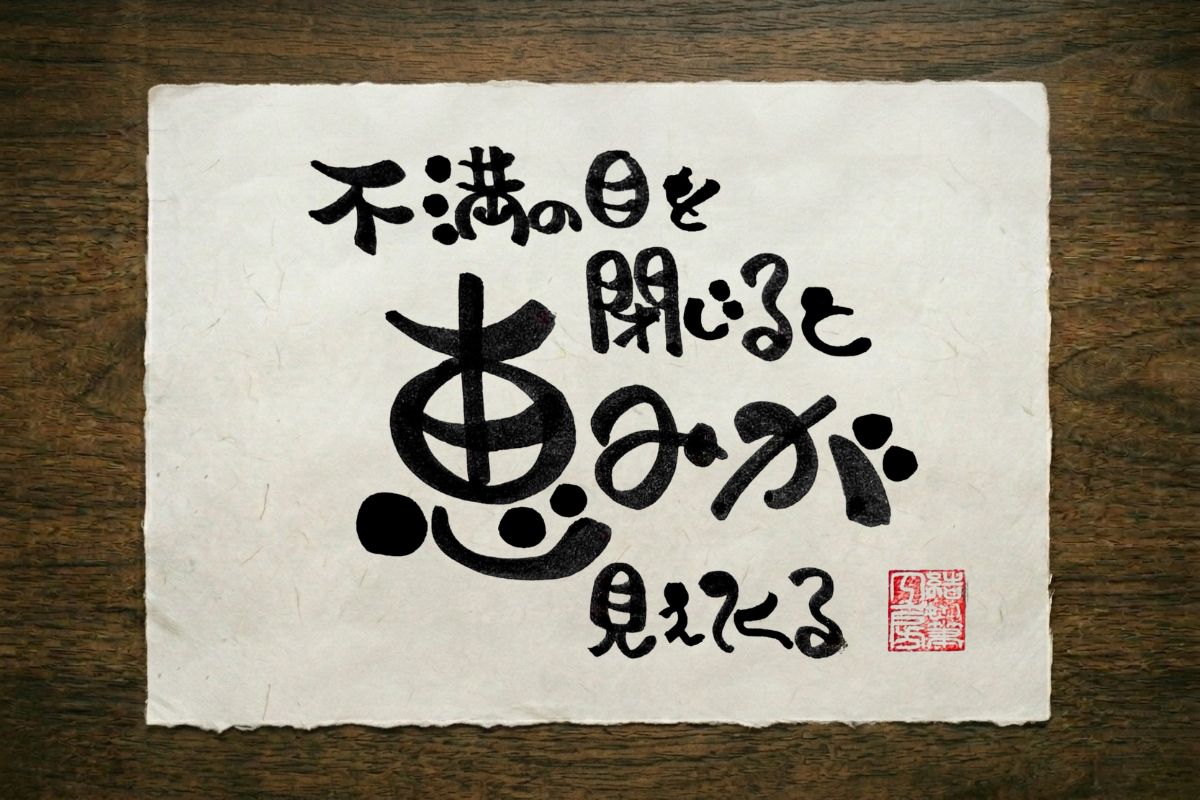 不満の目を
閉じると
恵みが
見えてくる